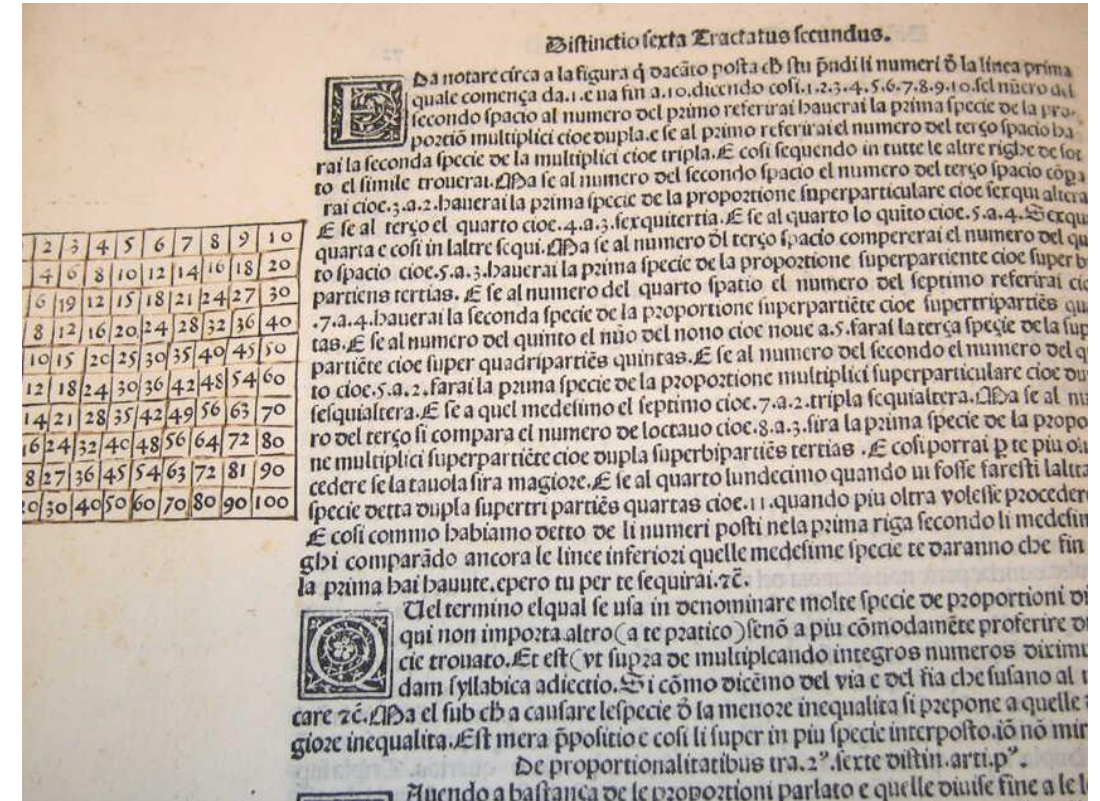 Distinctio sexta Tractatus secundus.
Da notare circa a la figura q̄ dacāto posta cħ stu p̄ndi li numeri ō la linea prima
quale comença da.1.e ua fin a.10.dicendo cosi.1.2.3.4.5.6.7.8.9.10.sel nūero del
secondo spacio al numero del primo referirai hauerai la prima specie de la pro-
portiō multiplici cioe dupla.e se al primo referirai el numero del terço spacio ha
rai la seconda specie de la multiplici cioe tripla.E cosi sequendo in tutte le altre righe de sot
to el simile trouerai.Ma se al numero del secondo spacio el numero del terço spacio cōpa
rai cioe.3.a.2.hauerai la prima specie de la proportione superparticulare cioe sexqui altera
E se al terço el quarto cioe.4.a.3.sexquitertia.E se al quarto lo quito cioe.5.a.4.Sexqui
quarta e cosi in laltre sequi.Ma se al numero ōl terço spacio compererai el numero del qu
to spacio cioe.5.a.3.hauerai la prima specie de la proportione superpartiente cioe super b
partiens tertias. E se al numero del quarto spatio el numero del septimo referirai cio
.7.a.4.hauerai la seconda specie de la proportione superpartiēte cioe supertripartiēs qua
tas.E se al numero del quinto el nūo del nono cioe noue a.5.farai la terça speçie de la sup
partiēte cioe super quadripartiēs quintas.E se al numero del secondo el numero del q
to cioe.5.a.2.farai la prima specie de la proportione multiplici superparticulare cioe du
sesquialtera.E se a quel medesimo el septimo cioe.7.a.2.tripla sequialtera.Ma se al nu
ro del terço si compara el numero de loctauo cioe.8.a.3.sira la prima specie de la propo
ne multiplici superpartiēte cioe dupla superbipartiēs tertias .E cosi porrai p te piu oltra
cedere se la tauola sira magiore.E se al quarto lundecimo quando ui fosse faresti laltra
specie detta dupla supertri partiēs quartas cioe.11.quando piu oltra volesse procedere
E cosi commo habiamo detto de li numeri posti nela prima riga secondo li medesim
ghi comparādo ancora le linee inferiori quelle medesime specie te daranno che fin
la prima hai hauute.epero tu per te sequirai.⁊c̄.
2 3 4 5 6 7 8 9 10
4 6 8 10 12 14 16 18 20
6 19 12 15 18 21 24 27 30
8 12 16 20 24 28 32 36 40
10 15 20 25 30 35 40 45 50
12 18 24 30 36 42 48 54 60
14 21 28 35 42 49 56 63 70
16 24 32 40 48 56 64 72 80
8 27 36 45 54 63 72 81 90
20 30 40 50 60 70 80 90 100
QUel termino elqual se usa in denominare molte specie de proportioni
qui non importa altro(a te pratico)senō a piu cōmodamēte proferire
cie trouato.Et est(vt supra de multiplcando integros numeros diximu
dam syllabica adiectio.Si cōmo dicēmo del via e del fia che susano al
care ⁊c̄.Ma el sub cħ a causare lespecie ō la menore inequalita si prepone a quelle
giore inequalita.Est mera p̄positio e cosi li super in piu specie interposto.iō nō mir
De proportionalitatibus tra.2ꝰ.sexte distin.arti.pꝰ.
Auendo a bastança de le proportioni parlato e quelle diuise fine a le